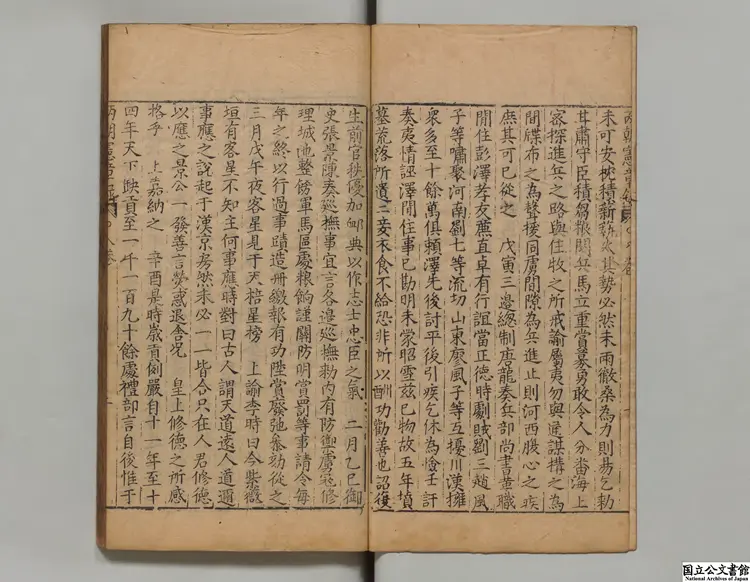 未可安枕積薪藉火其勢必然未雨徹桑為力則易乞勅
甘肅守臣積芻散閑兵馬立重賞募勇敢令人分番海上
密探進兵之路與住牧之所戒諭屬夷勿與通謀搆之為
間牒布之為聲援同虜間隙為兵進止則河西腹心之疾
庶其可已從之　戊寅三邊緫制唐龍奏兵部尚書黃職
閒住彭澤孝友廉直卓有行誼當正德時劇賊劉三趙風
子等嘯聚河南劉七等流刼山東廖風子等互擾川漢擁
衆多至十餘萬俱頼澤先後討平後引疾乞休為憸壬訐
奏夷情誣澤閒住事已勘明未蒙昭雪茲已物故五年墳
墓荒落所遺二妾衣食不給恐非所以酬功勸善也詔復
生前官秩優加邮典以作志士忠臣之氣　二月乙巳御
史張景陳奏巡撫事宜言各邊巡撫勅內有防禦虜寇修
理城池整飭軍馬區處粮餉謹關防明賞罰等事請令每
年之終以行過事蹟造册繳報有功陞賞廢弛叅劾從之
三月戊午夜客星見于天棓星榜　上諭李時曰今紫微
垣有客星不知主何事應時對曰古人謂天道遠人道邇
事應之說起于漢京房然未必一一皆合只在人君修德
以應之景公一發善言熒惑退舍况　皇上修德之所感
格乎　上嘉納之　辛酉是時歲貢例嚴自十一年至十
四年天下缺貢至一千一百九十餘處禮部言自後惟于
国立公文書館
National Archives of Japan